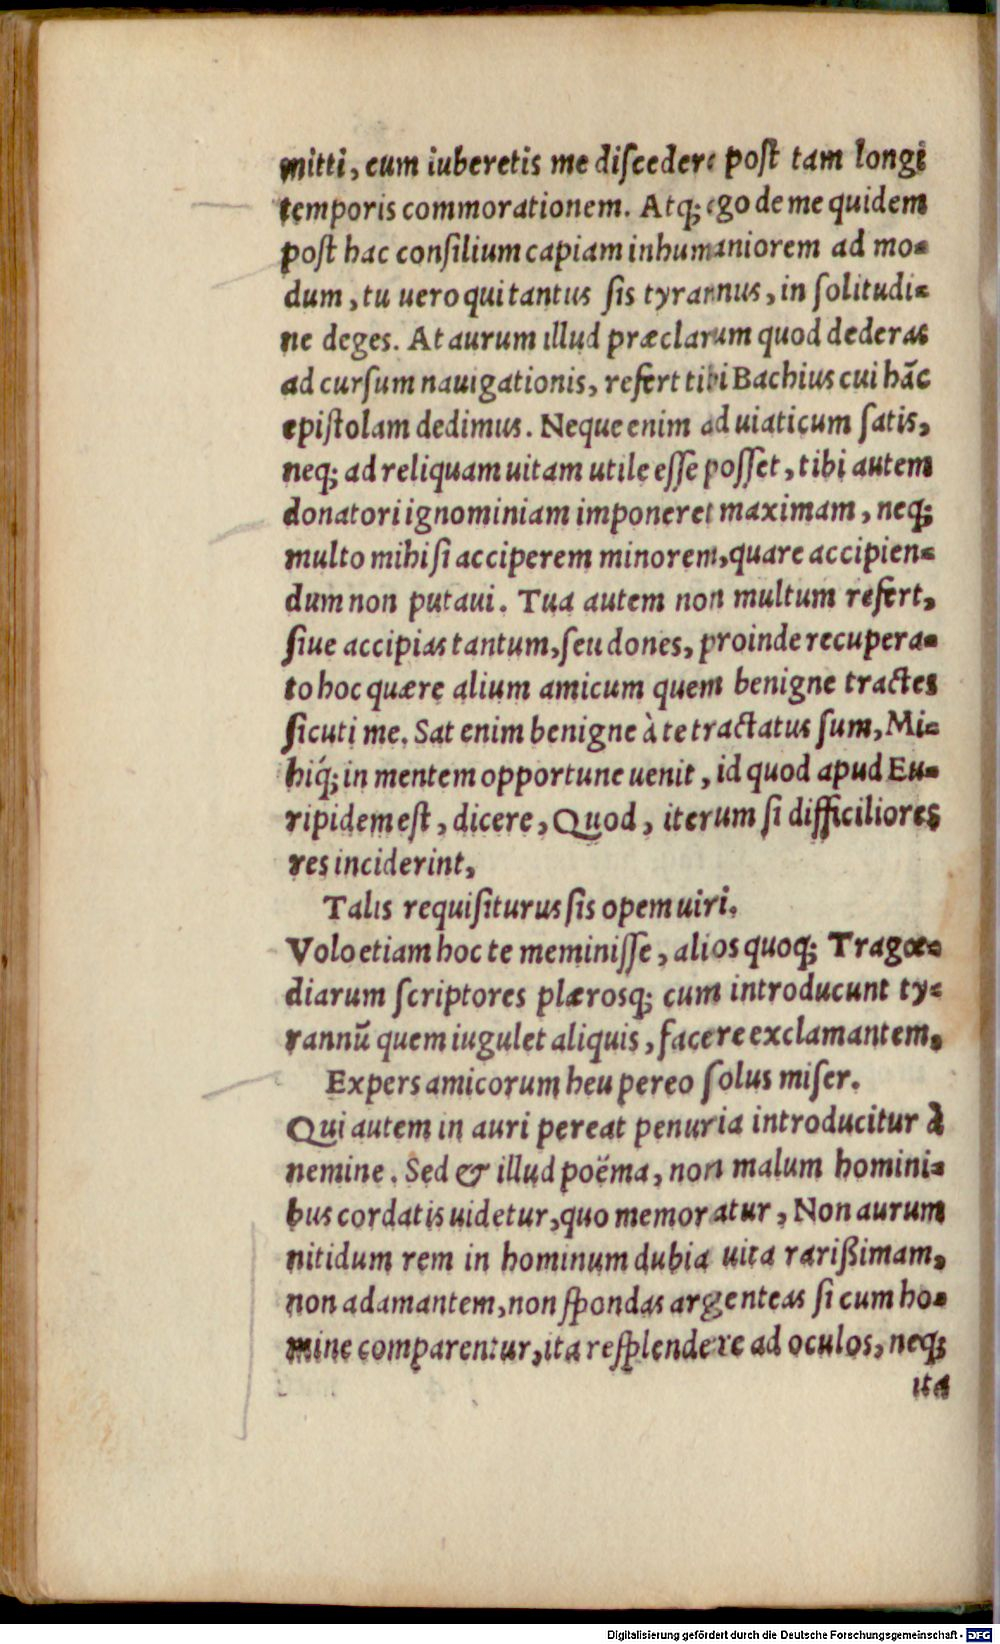 mitti, cum iuberetis me diſcedere poſt tam longi
temporis commorationem. Atq; ego de me quidem
poſt hac conſilium capiam inhumaniorem ad mo-
dum, tu uero qui tantus ſis tyrannus, in ſolitudi-
ne deges. At aurum illud præclarum quod dederas
ad curſum nauigationis, refert tibi Bachius cui hãc
epiſtolam dedimus. Neque enim ad uiaticum ſatis,
neq; ad reliquam uitam utile eſſe poſſet, tibi autem
donatori ignominiam imponeret maximam, neq;
multo mihi ſi acciperem minorem, quare accipien-
dum non putaui. Tua autem non multum refert,
ſiue accipias tantum, ſeu dones, proinde recupera-
to hoc quære alium amicum quem benigne tractes
ſicuti me. Sat enim benigne à te tractatus ſum, Mi-
hiq́; in mentem opportune uenit, id quod apud Eu-
ripidem eſt, dicere, Quod, iterum ſi difficiliores
res inciderint,
Talis requiſiturus ſis opem uiri.
Volo etiam hoc te meminiſſe, alios quoq; Tragœ-
diarum ſcriptores plærosq; cum introducunt ty-
rannũ quem iugulet aliquis, facere exclamantem,
Expers amicorum heu pereo ſolus miſer.
Qui autem in auri pereat penuria introducitur à
nemine. Sed & illud poëma, non malum homini-
bus cordatis uidetur, quo memoratur, Non aurum
nitidum rem in hominum dubia uita rarißimam,
non adamantem, non ſpondas argenteas ſi cum ho-
mine comparentur, ita reſplendere ad oculos, neq;
ita
Digitalisierung gefördert durch die Deutsche Forschungsgemeinschaft - DFG